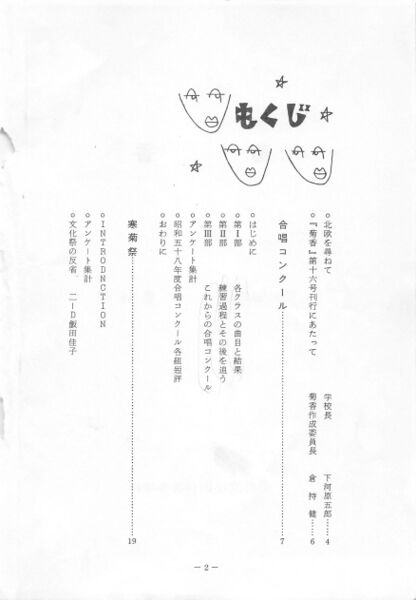 もくじ
◦北欧を尋ねて 学校長 下河原五郎……4
◦『菊香』第十六号刊行にあたって 菊香作成委員長 倉持健……6
合唱コンクール……7
◦はじめに
◦第Ⅰ部 各クラスの曲目と結果
◦第Ⅱ部 練習過程とその後を追う
◦第Ⅲ部 これからの合唱コンクール
◦アンケート集計
◦昭和五十八年度合唱コンクール各組短評
◦おわりに
寒菊祭……19
◦INTRODNCTION
◦アンケート集計
◦文化祭の反省 二ーD飯田佳子
－2－